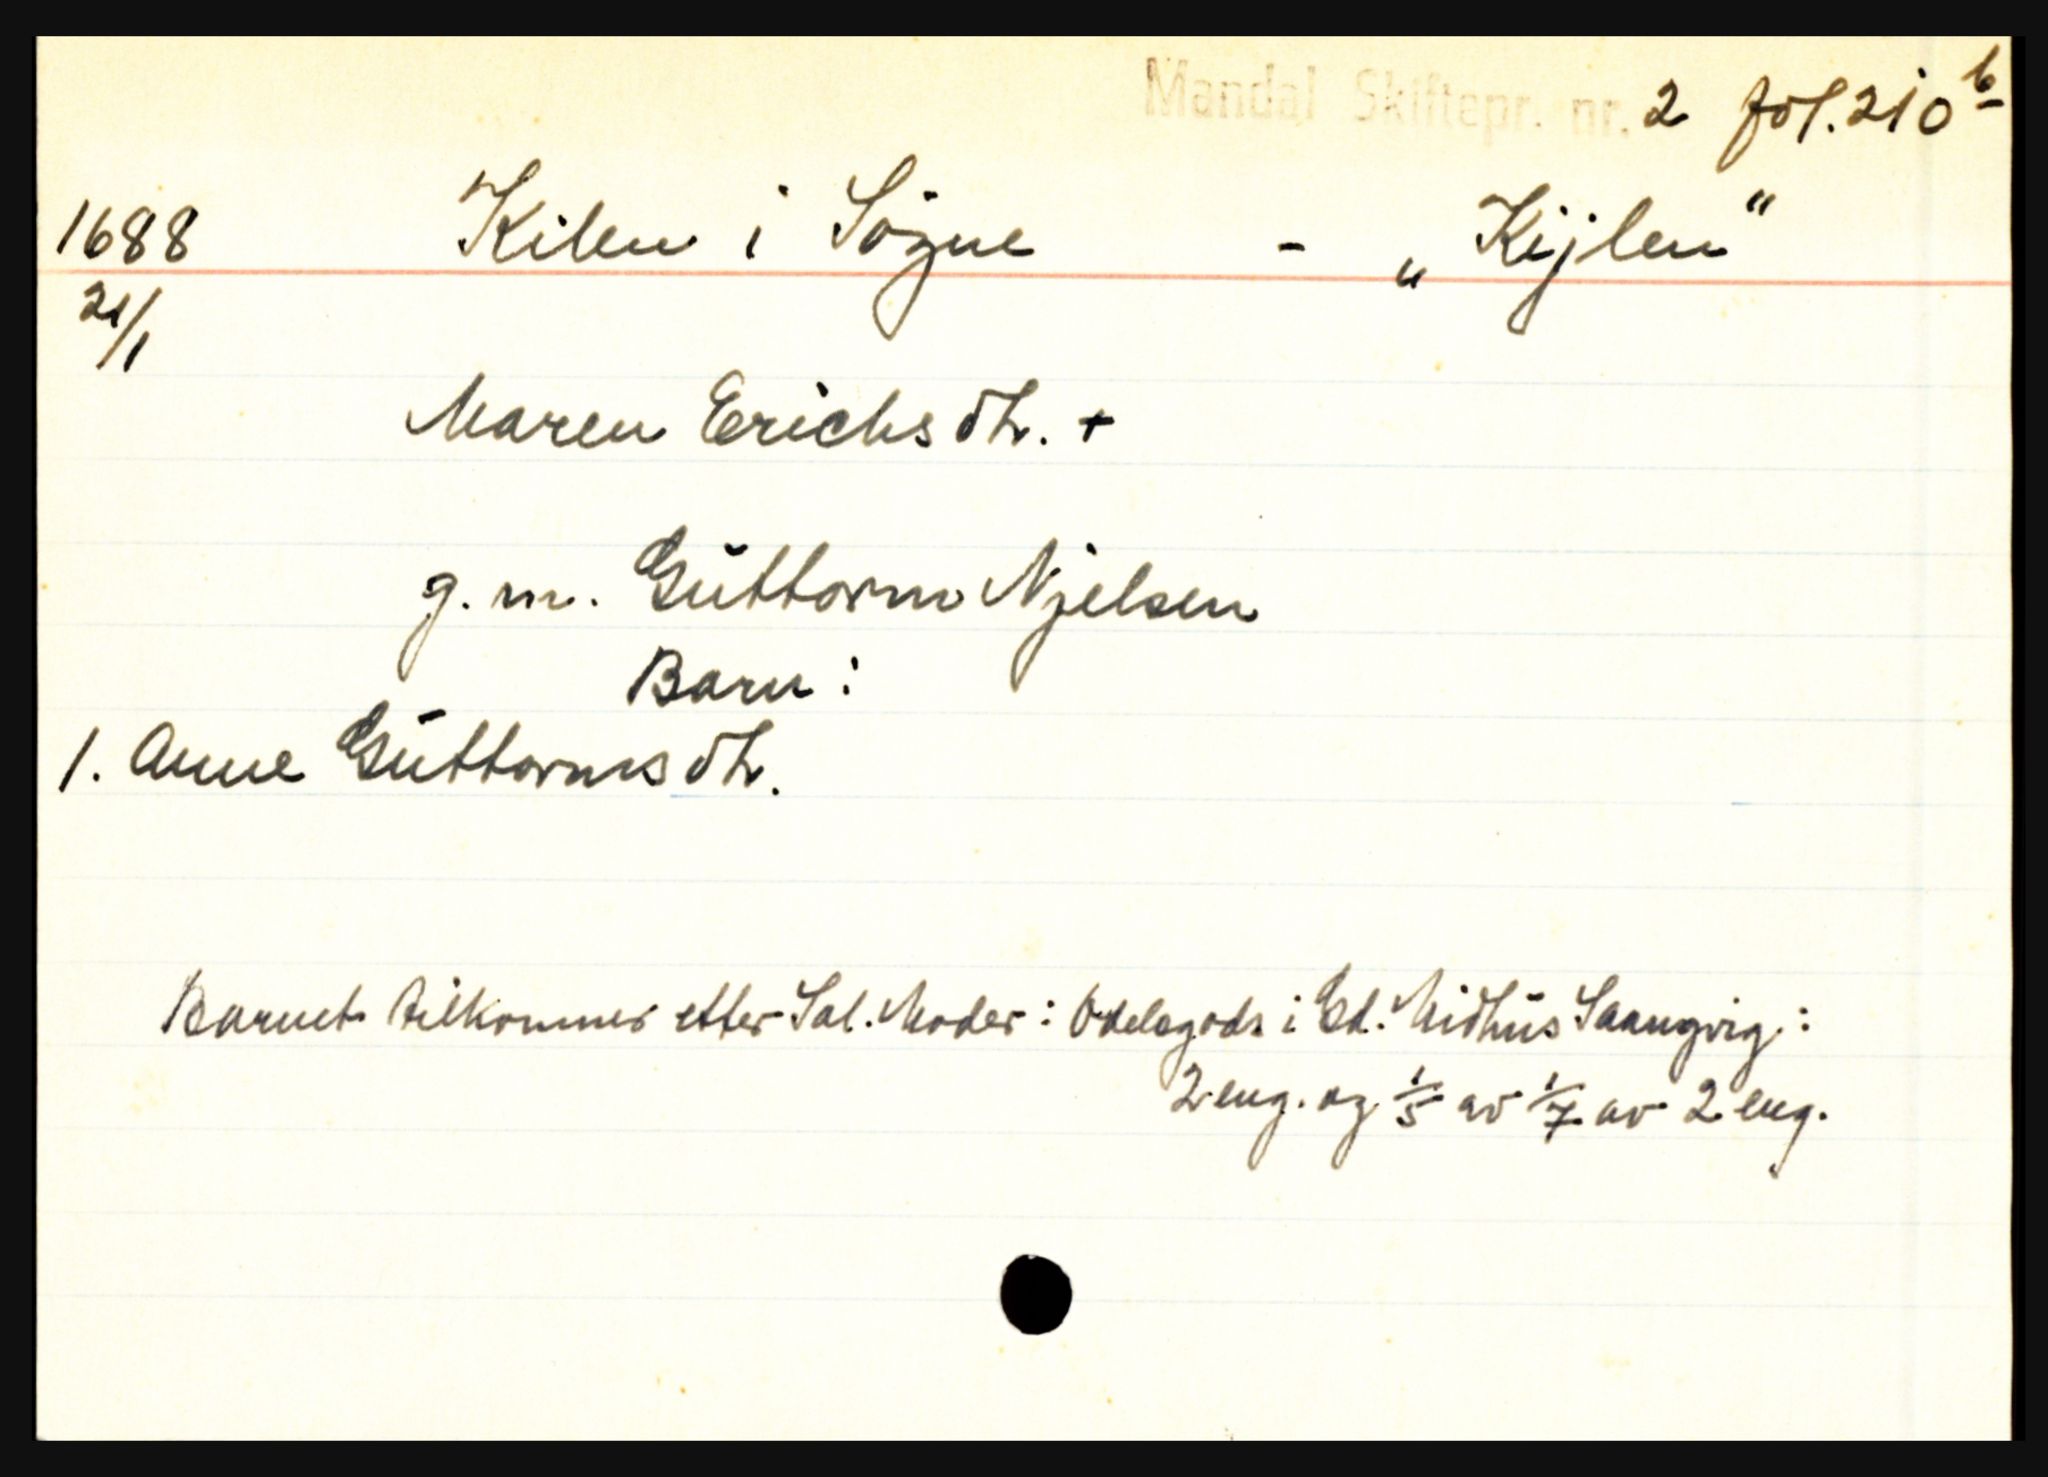 Mandal Skiftepr. nr. 2 fol. 210 b
1688 Kilen i Søgne - „Kijlen“
21/1
Maren Erichsdtr. +
g. m. Guttorm Njelsen
Barn:
1. Anne Guttormsdtr.
Barnet tilkommer etter Sal. Moder: Odelsgods i Ed. Midhus Saangvig:
2 eng. og 1/5 av 1/7 av 2 eng.